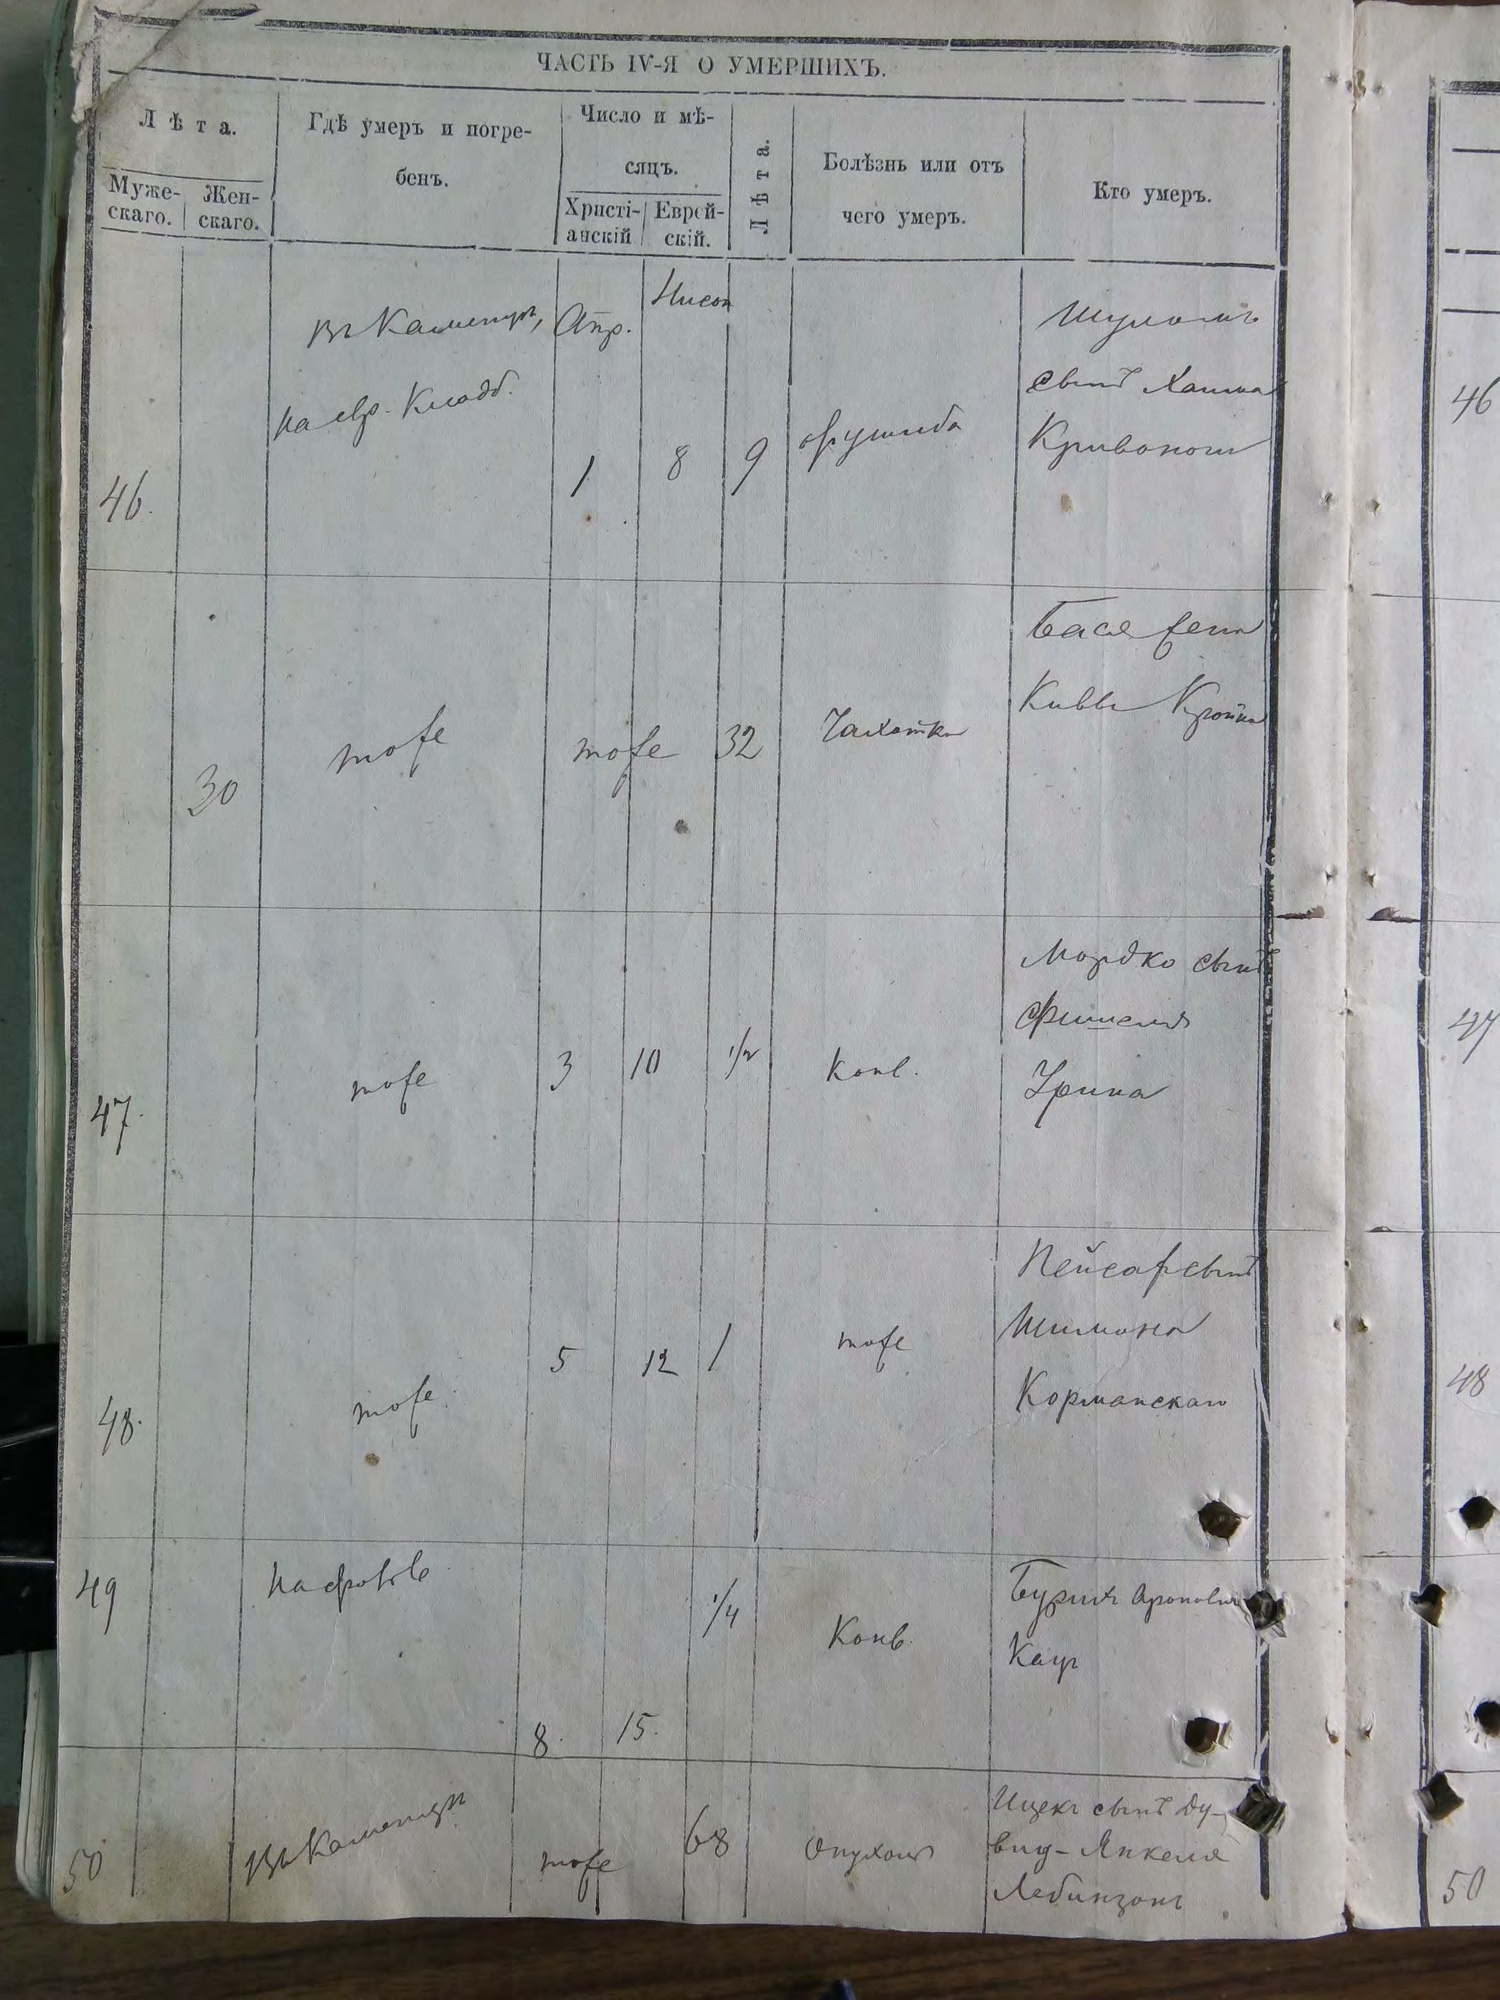 ЧАСТЬ IV-Я О УМЕРШИХЪ.
Лѣта.
Муже-
скаго.
Жен-
скаго.
Гдѣ умеръ и погре-
бенъ.
Число и мѣ-
сяцъ.
Христі-
анскій
Еврей-
скій.
Лѣта.
Болѣзнь или отъ
чего умеръ.
Кто умеръ.
46.
въ Каменцѣ,
на евр. Кладб.
Апр.
1
Нисон
8
9
Шуломъ
сынъ Хаима
Кривонош
46
30
тоже
тоже
32
Чахотка
Бася жена
Кивы
47.
тоже
3
10
1/2
Конв.
Мордко сынъ
Фишеля
Урина
47
48.
тоже
5
12
1
тоже
Пейсах сынъ
Шимона
Корманскаго
48
49
8.
15.
1/4
Конв.
Бурих Аронович
Кац
50
Въ Каменцѣ
тоже
68
Опухоль
Ицек сынъ Ду-
вид-Янкеля
Лебинзон
50